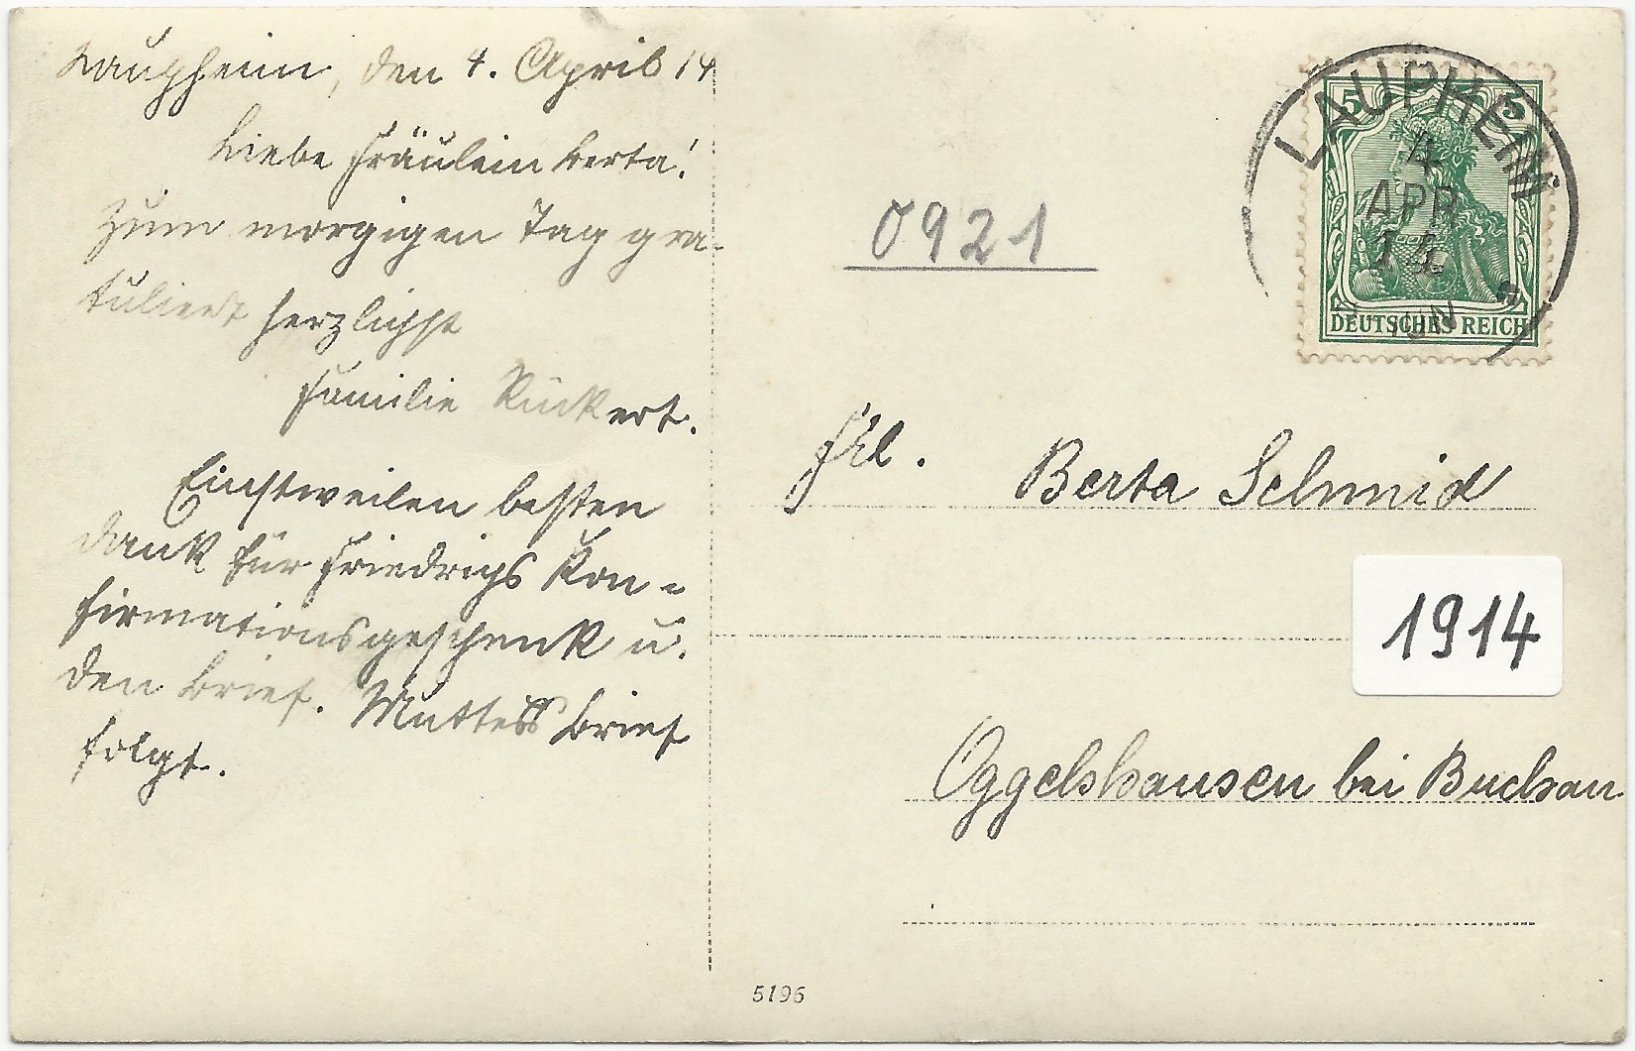 Laupheim, den 4. April 14
Liebe Fräulein Berta!
Zum morgigen Tag gra-
tuliert herzlichst
Familie Rückert.
Einstweilen besten
Dank für Friedrichs Kon-
firmationsgeschenk u.
den Brief. Mutters Brief
folgt.
5196
0921
LAUPHEIM
4
APR
14
5 5
DEUTSCHES REICH
Frl. Berta Schmid
1914
Oggelshausen bei Buchau